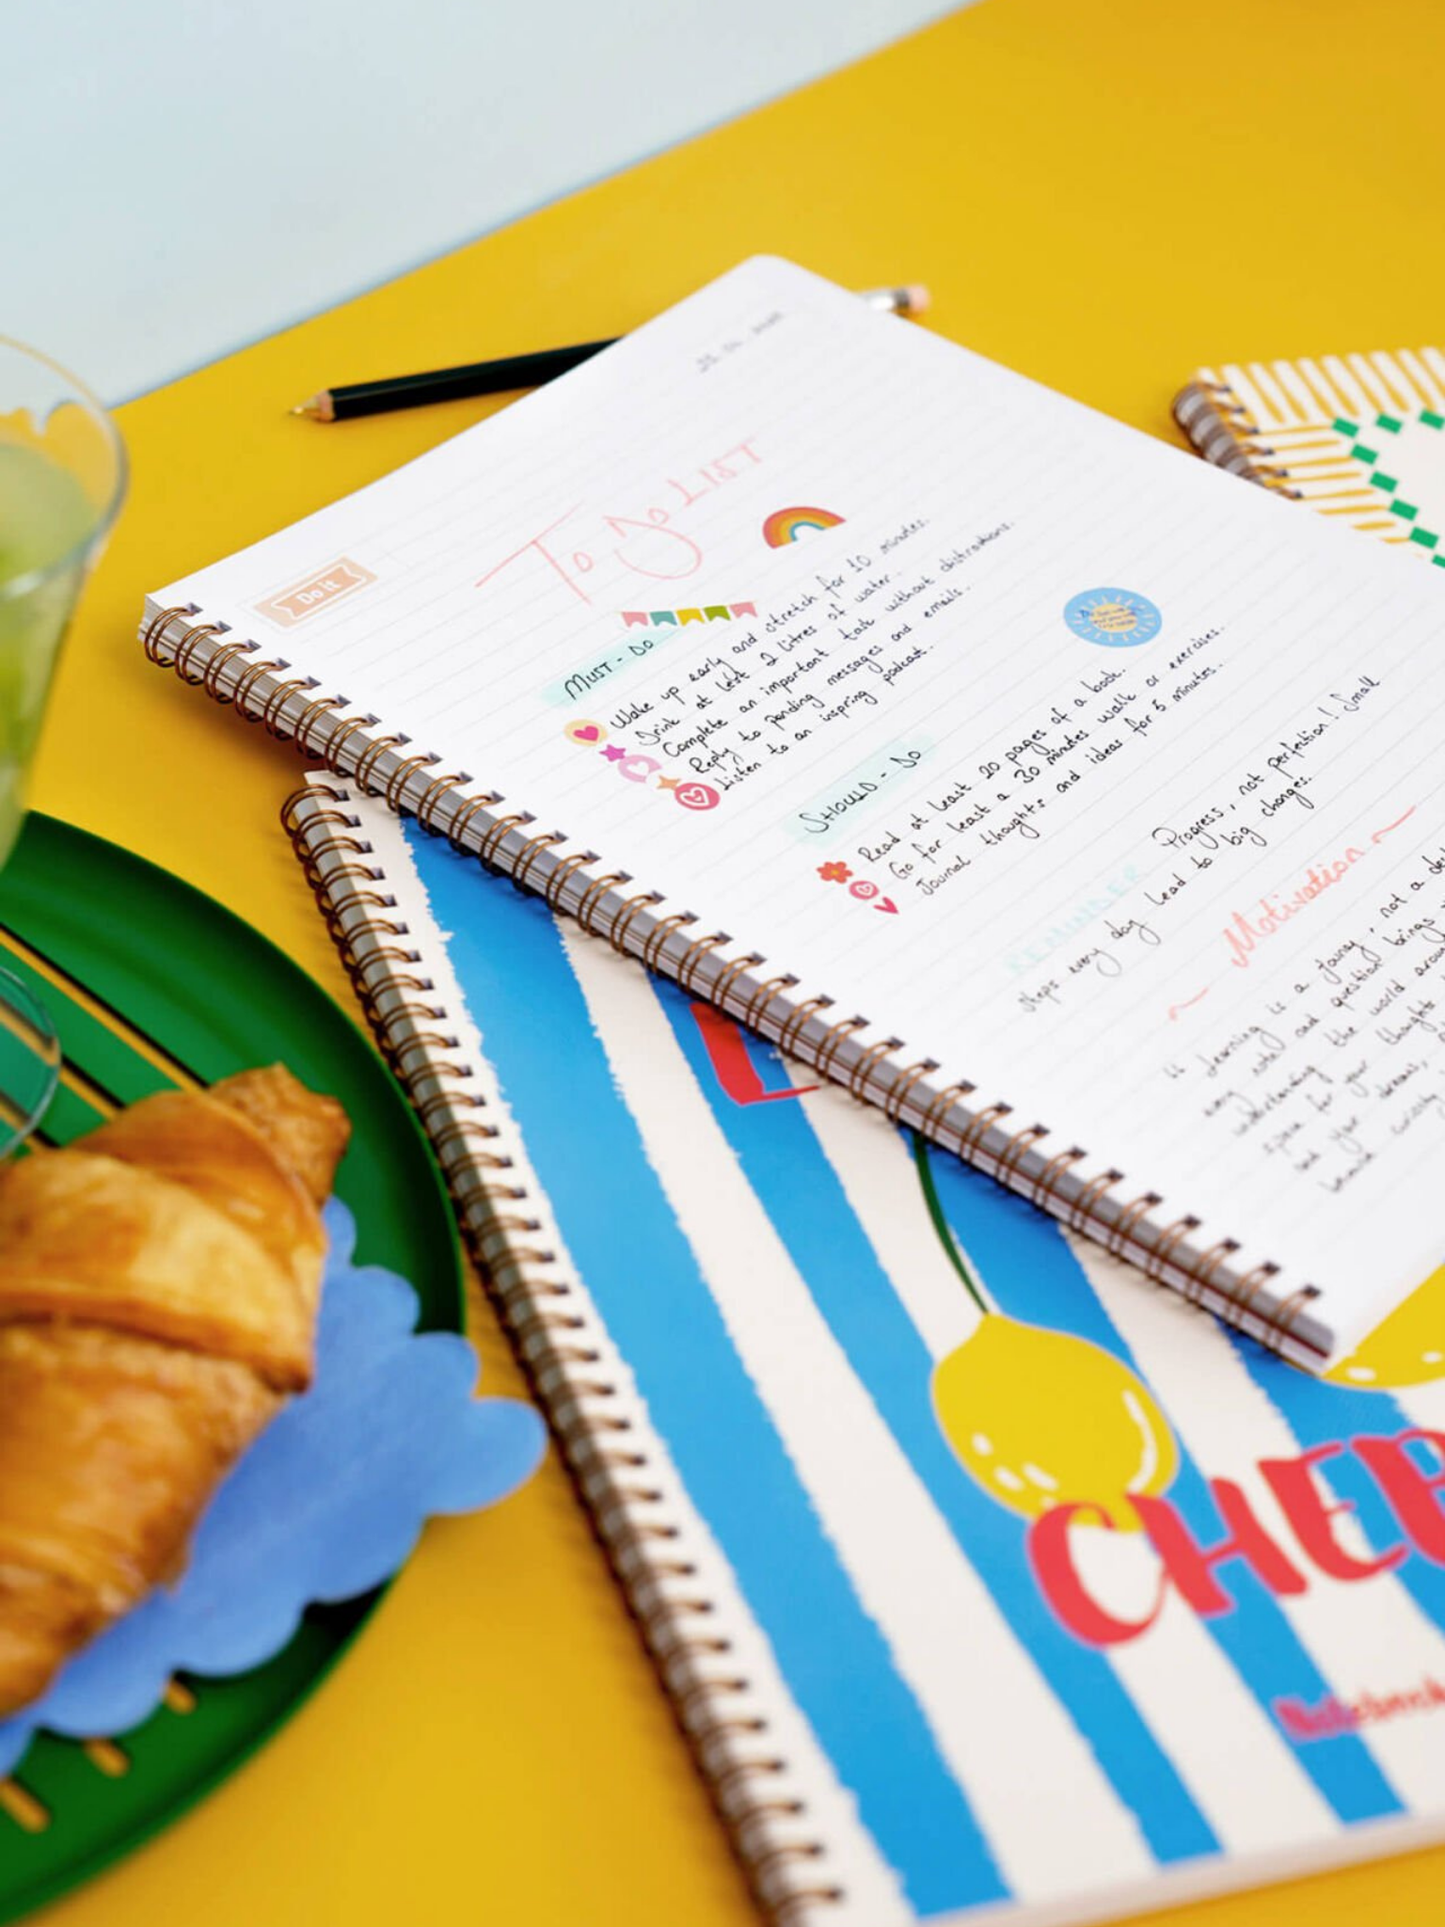 To do LIST
Do it
MUST - DO
Wake up early and stretch for 10 minutes.
Drink at lest 2 litres of water.
Complete an important task without distractions.
Reply to pending messages and emails.
Listen to an inspiring podcast.
SHOULD - DO
Read at least 20 pages of a book.
Go for least a 30 minutes walk or exercises.
Journal thoughts and ideas for 5 minutes.
REMINDER Progress, not perfection! Small
steps every day lead to big changes.
~ Motivation ~
" Learning is a , not a
every note and question brings
understanding the world
space for your thoughts
and your dreams,
curiosity
CHEE